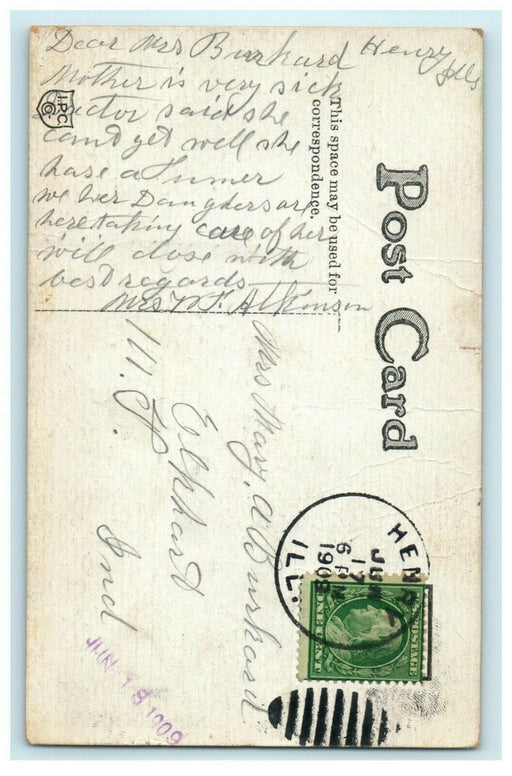 Dear Mrs Burkard Henry
Ills
Mother is very sick
Doctor said she
cant get well she
hase a Tumer
we her Daughers are
here taking care of her
will close with
best regards
Mrs W. F. Atkinson
I.P.C.
Co.
This space may be used for
correspondence.
Post Card
Mrs Mary A Burkard
Elkhart
Ind
HENRY
JUN
17
6 PM
1909
ILL.
U.S. POSTAGE
ONE CENT
JUN 18 1909